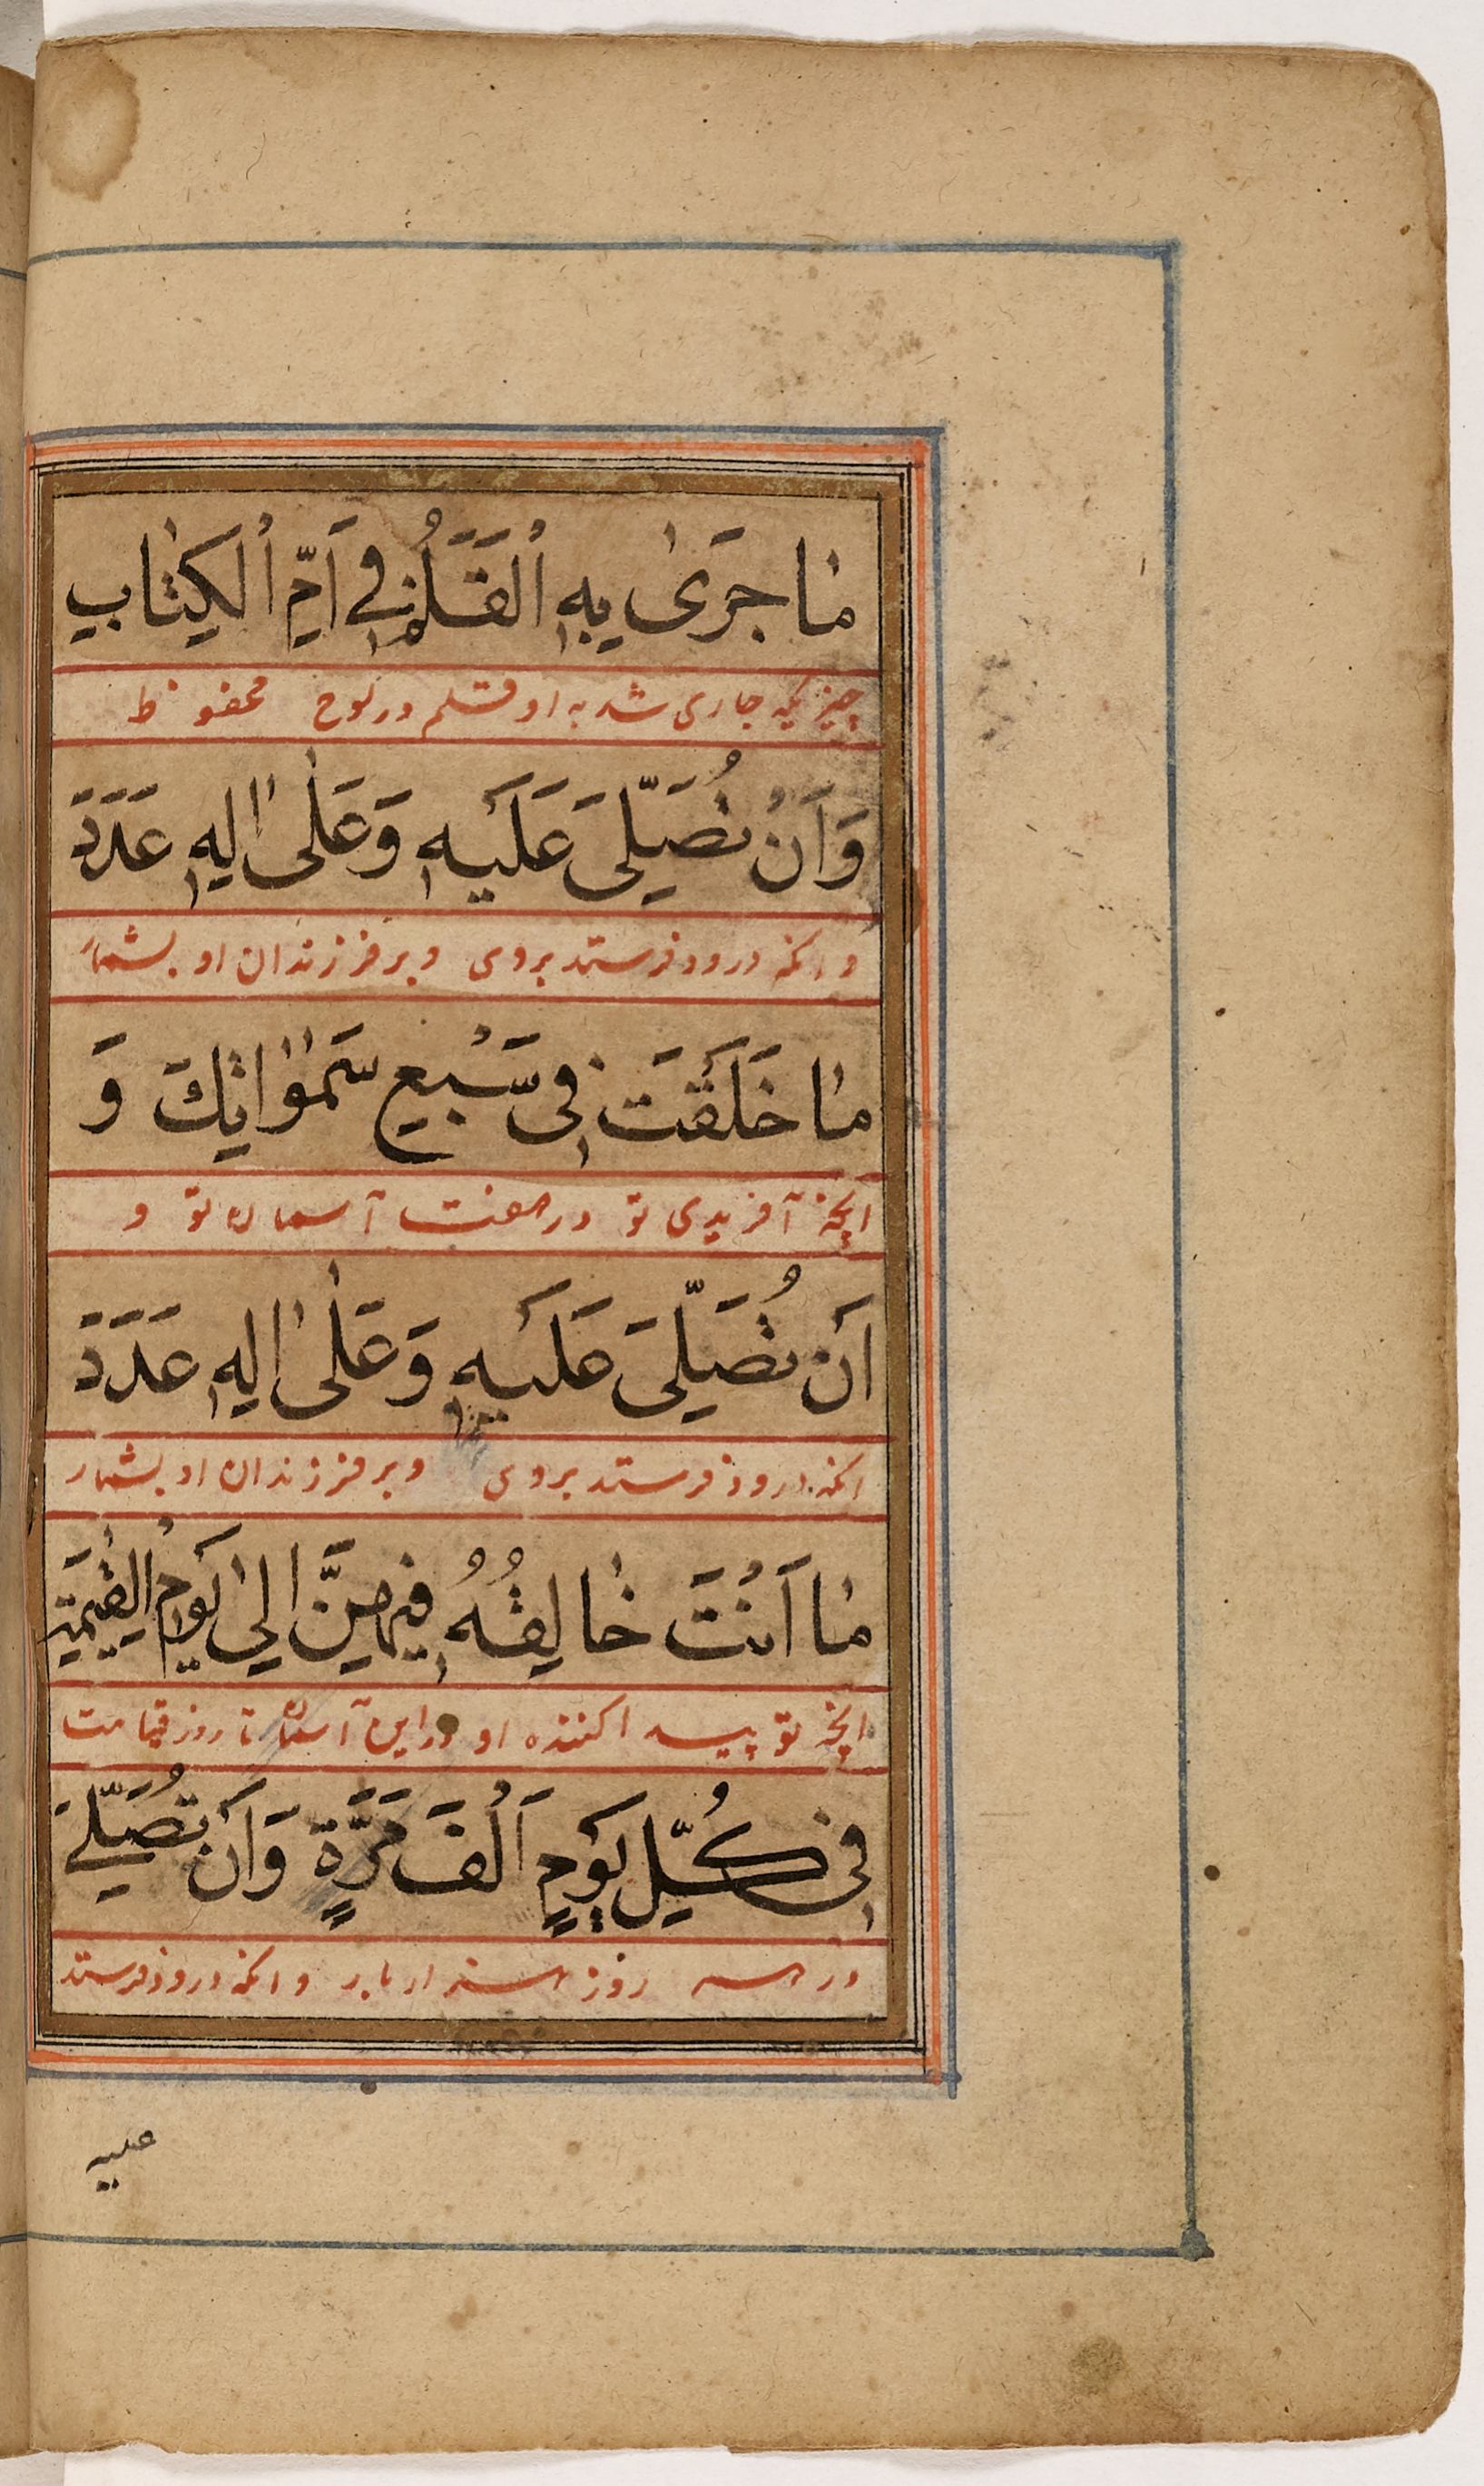 مٰا جَرىٰ بِهِ ٱلْقَلَمُ فِي اُمِّ ٱلْكِتٰابِ
چیزیکه جاری شد به او قلم در لوح محفوظ
وَاَنْ تُصَلِّىَ عَلَيْهِ وَعَلٰى اٰلِهِ عَدَدَ
و انکه درود فرستد بروی و بر فرزندان او بشمار
مٰا خَلَقْتَ فِى سَبْعِ سَمٰوٰاتِكَ وَ
انچه آفریدی تو در هفت آسمان تو و
اَنْ تُصَلِّىَ عَلَيْهِ وَعَلٰى اٰلِهِ عَدَدَ
انکه درود فرستد بروی و بر فرزندان او بشمار
مٰا اَنْتَ خٰالِقُهُ فِيهِنَّ اِلىٰ يَوْمِ الْقِيٰمَةِ
انچه تو پیدا کننده او در این آسمان تا روز قیامت
فِى كُلِّ يَوْمٍ اَلْفَ مَرَّةٍ وَاَنْ تُصَلِّىَ
در هر روز هزار بار و انکه درود فرستد
علیه